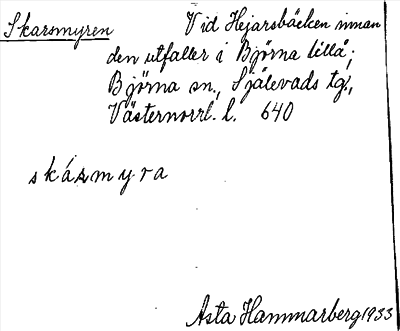 Skarsmyren Vid Hejarsbäcken innan
den utfaller i Björna lillå;
Björna sn., Själevads tg.,
Västernorrl. l. 640
skásmyra
Asta Hammarberg 1933